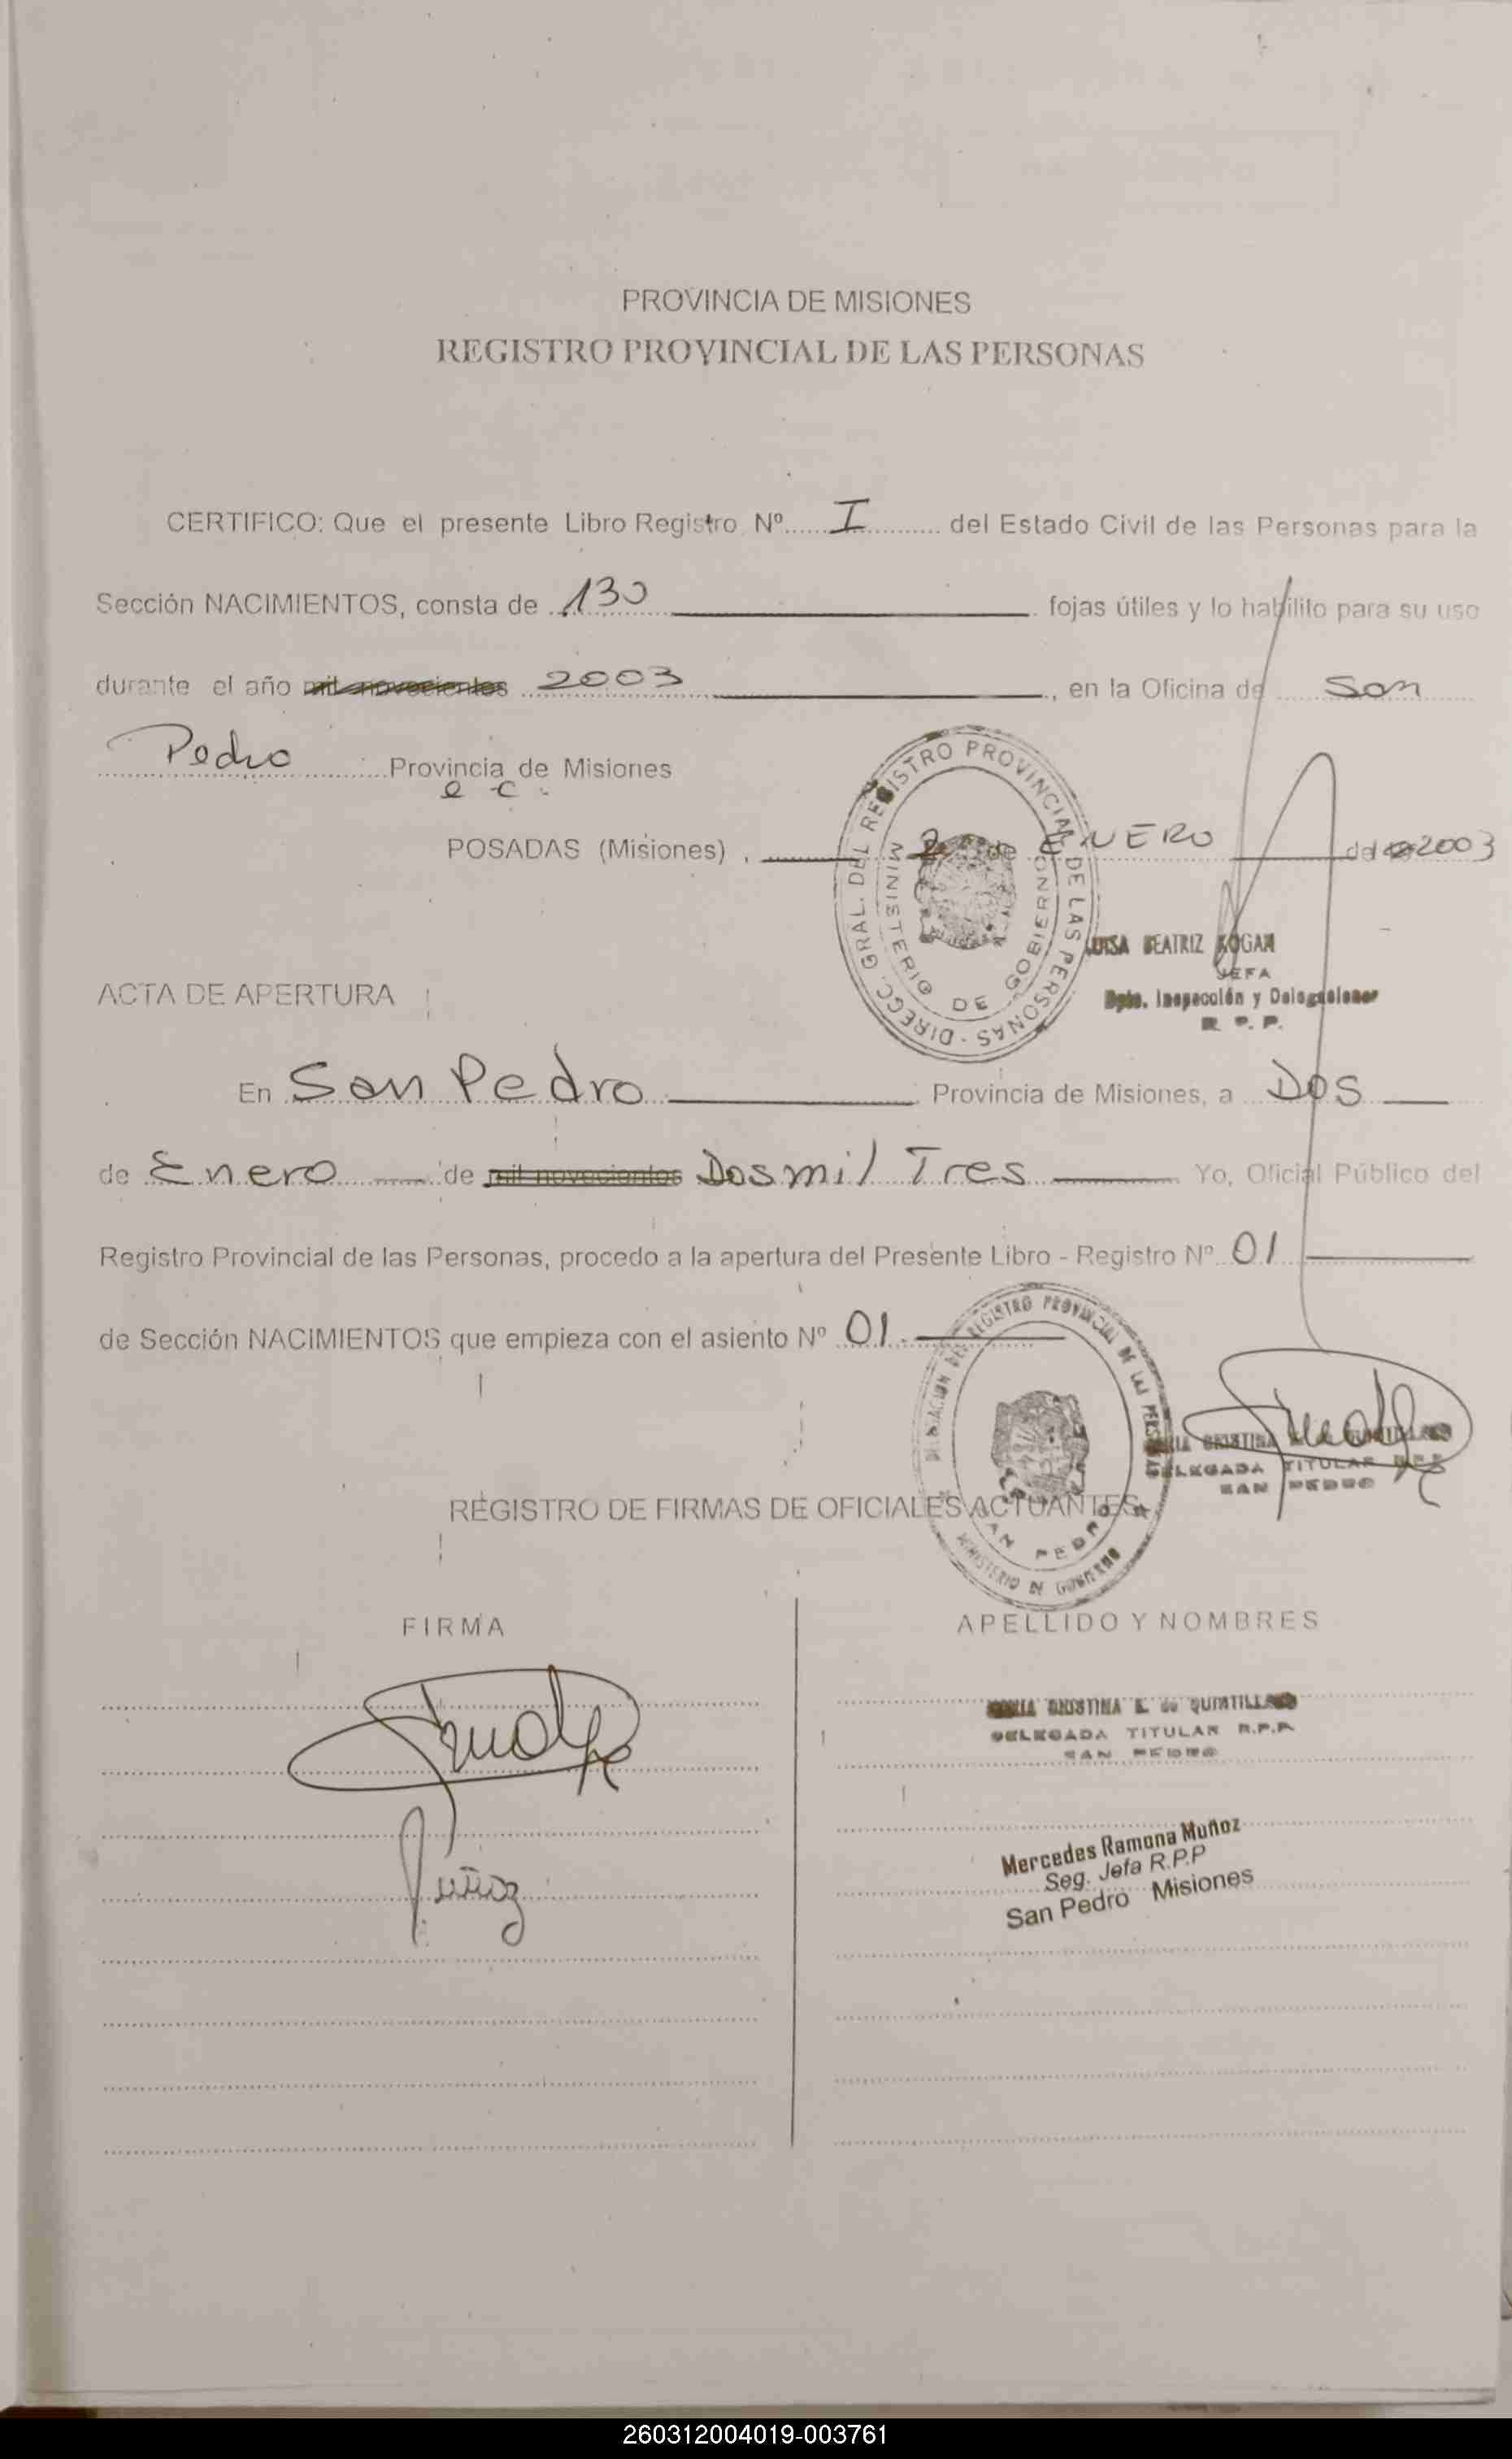 PROVINCIA DE MISIONES
REGISTRO PROVINCIAL DE LAS PERSONAS
CERTIFICO: Que el presente Libro Registro Nº I del Estado Civil de las Personas para la
Sección NACIMIENTOS, consta de 130 fojas útiles y lo habilito para su uso
durante el año mil novecientos 2003, en la Oficina de San
Pedro Provincia de Misiones
POSADAS (Misiones), 2 de ENERO del 2003
DIRECC. GRAL. DEL REGISTRO PROVINCIAL DE LAS PERSONAS -
MINISTERIO DE GOBIERNO
BEATRIZ KOGAN
JEFA
Dpto. Inspección y Delegaciones
R. P. P.
ACTA DE APERTURA
En San Pedro Provincia de Misiones, a DOS
de Enero de mil novecientos Dos mil Tres Yo, Oficial Público del
Registro Provincial de las Personas, procedo a la apertura del Presente Libro - Registro Nº 01
de Sección NACIMIENTOS que empieza con el asiento Nº 01.
DELEGACION DEL REGISTRO PROVINCIAL DE LAS PERSONAS
SAN PEDRO
MINISTERIO DE GOBIERNO
DELEGADA TITULAR R.P.P.
SAN PEDRO
REGISTRO DE FIRMAS DE OFICIALES ACTUANTES
FIRMA
APELLIDO Y NOMBRES
CRISTINA de QUINTILLANO
DELEGADA TITULAR R.P.P.
SAN PEDRO
Muñoz
Mercedes Ramona Muñoz
Seg. Jefa R.P.P
San Pedro Misiones
260312004019-003761